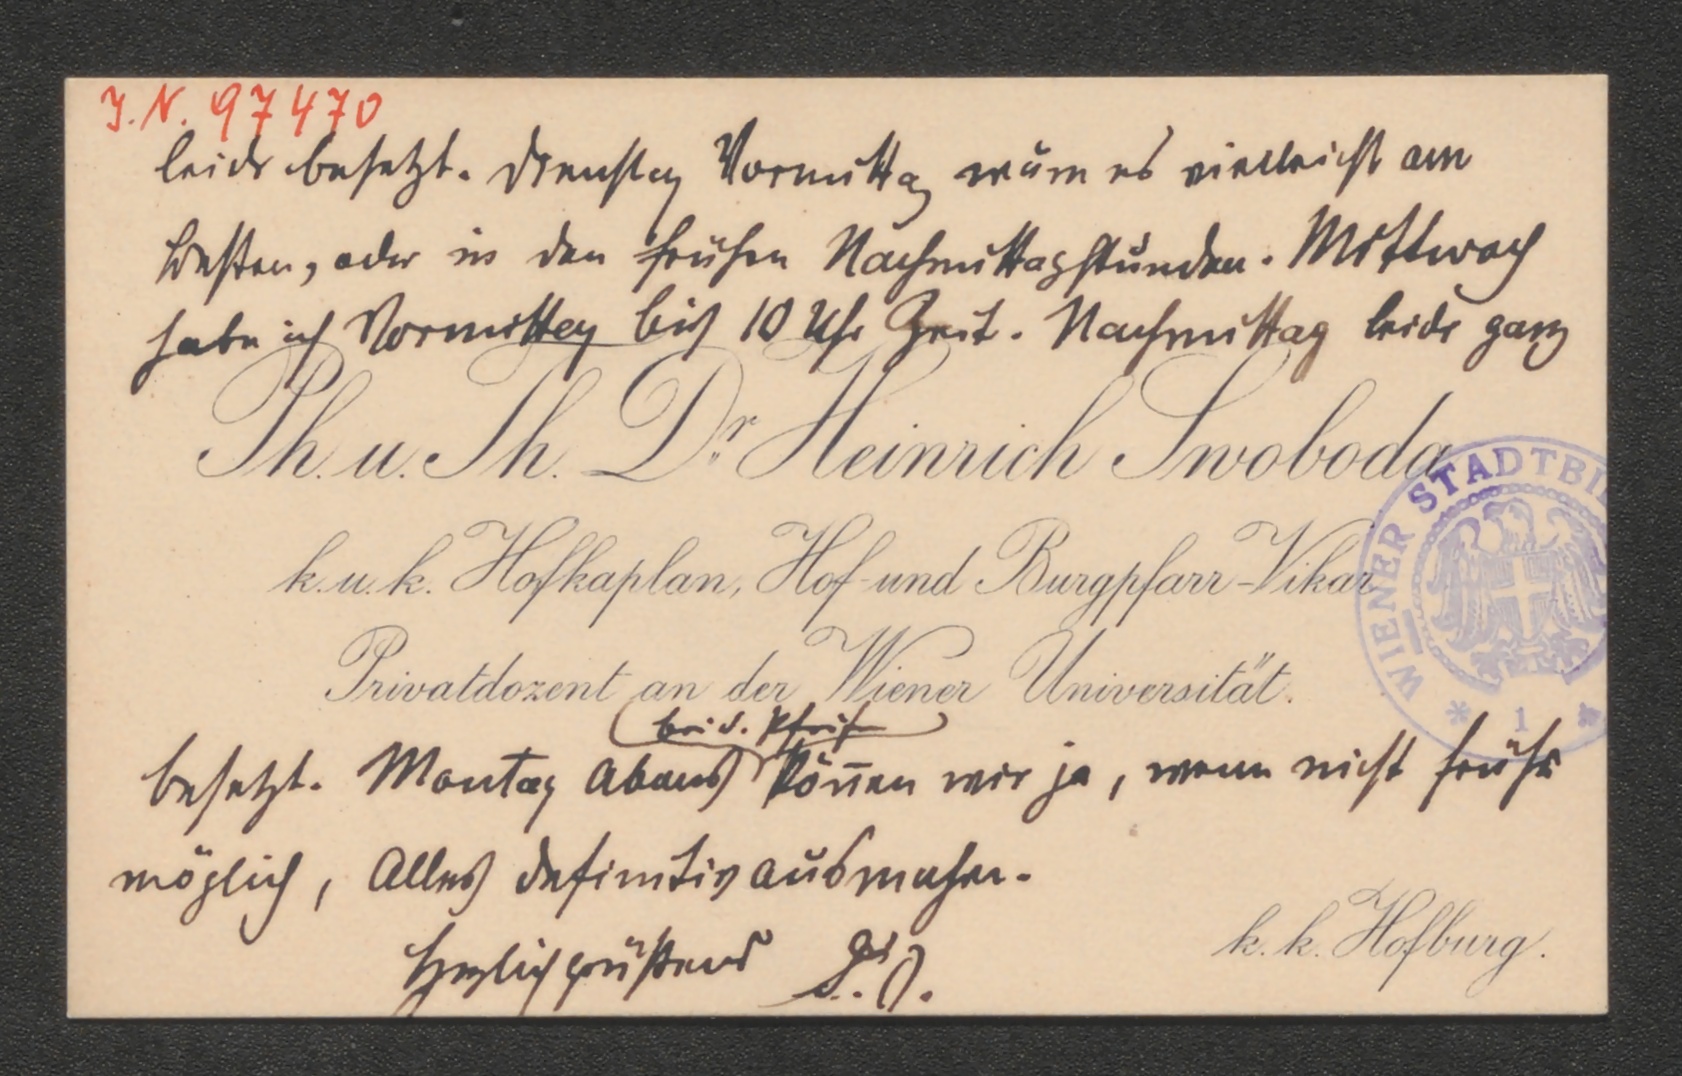 J. N. 97470
leider besetzt. Dienstag Vormittag wäre es vielleicht am
besten, oder in den frühen Nachmittagsstunden. Mittwoch
habe ich Vormittag bis 10 Uhr Zeit. Nachmittag leider ganz
Ph. u. Th. Dr. Heinrich Swoboda
k. u. k. Hofkaplan, Hof- und Burgpfarr-Vikar
Privatdozent an der Wiener Universität.
WIENER STADTBI
* 1 *
bei d.
besetzt. Montag Abends können wir ja, wenn nicht früher
möglich, Alles definitiv ausmachen.
k. k. Hofburg.
Herzlich grüßend